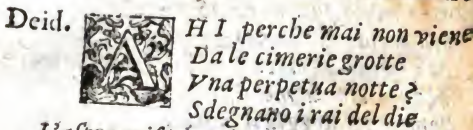 Deid. AHI perche mai non viene
Da le cimerie grotte
Vna perpetua notte?
Sdegnano i rai del die